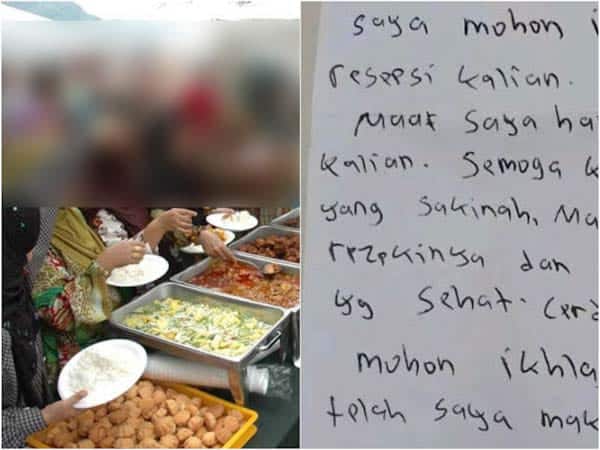 saya mohon i
resepsi kalian.
Maaf saya ha
kalian. Semoga k
yang sakinah, Ma
rezekinya dan
yg sehat. Cerd
mohon ikhla
telah saya mak